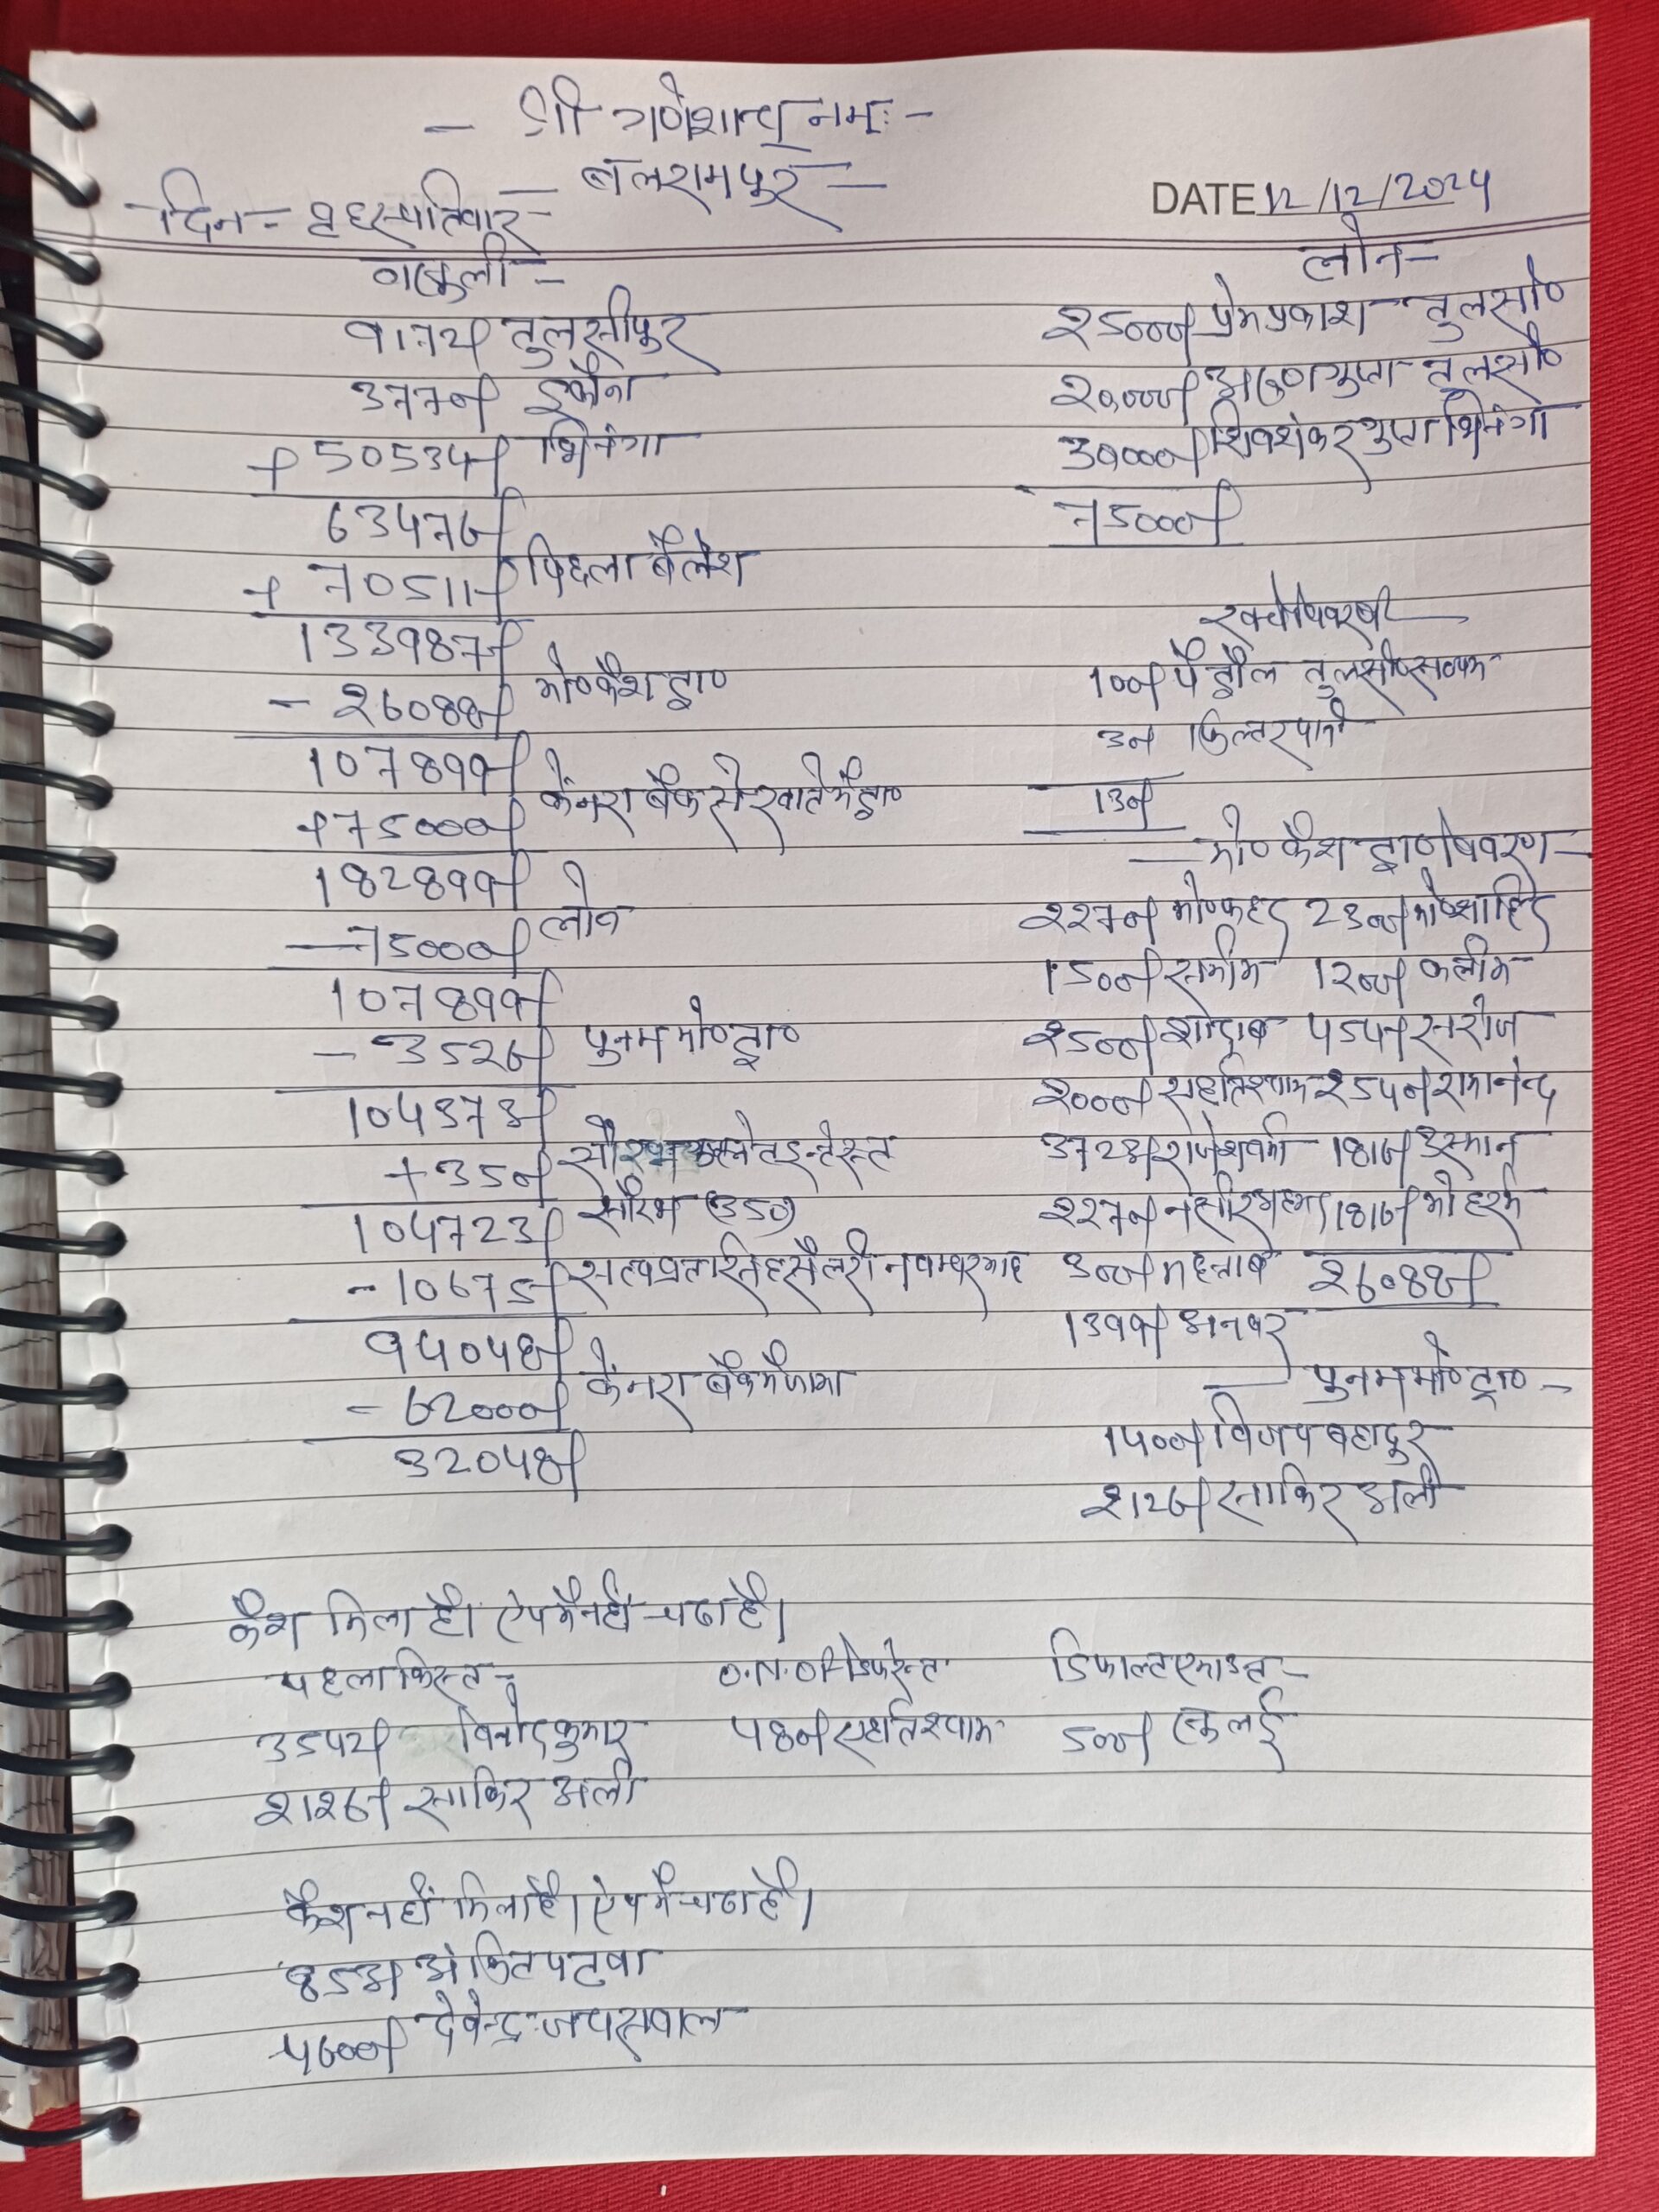 - श्री गणेशाय नमः -
- बलरामपुर -
दिन - बृहस्पतिवार -
DATE 12/12/2024
वसूली -
9172/ तुलसीपुर
3770/ इकौना
+ 50534/ भिनगा
63476/
+ 70511/ पिछला बैलेंश
133987/
- 26088/ मो० कैश ट्रा०
107899/
+ 75000/ केनरा बैंक से खाते में ट्रा०
182899/
- 75000/ लोन
107899/
- 3526/ पुनम मो० ट्रा०
104373/
+ 350/ सौरभ इन्टेरेस्ट
104723/ सौरभ (350)
- 10675/ सत्यव्रत सिंह सैलरी नवम्बर माह
94048/
- 62000/ केनरा बैंक में जमा
32048/
लोन -
25000/ प्रेम प्रकाश तुलसी०
20,000/ अरुण गुप्ता तुलसी०
30000/ शिवशंकर गुप्ता भिनगा
75000/
100/ पैट्रौल तुलसी०
30/ फिल्टर पानी
130/
- मो० कैश ट्रा० विवरण -
2270/ मो० फहद 2300/ मो० साहिद
1500/ समीम 1200/ कलीम
2500/ शादाब 4540/ सरोज
2000/ एहतिश्याम 2540/ रामानन्द
3723/ राजेश वर्मा 1816/ उस्मान
2270/ नसीर अहमद 1816/ मोहर्रम
300/ महताब 26088/
1399/ अनवर
- पुनम मो० ट्रा० -
1400/ विजय बहादुर
2126/ साकिर अली
कैश मिला है। ऐप में नही चढा है।
पहला किस्त - डिफाल्ट एमाउन्ट -
3542/ विनोद कुमार 480/ एहतिश्याम 500/
2126/ साकिर अली
कैश नहीं मिला है। ऐप में चढा है।
853/ अंकित पटवा
4600/ देवेन्द्र जयसवाल